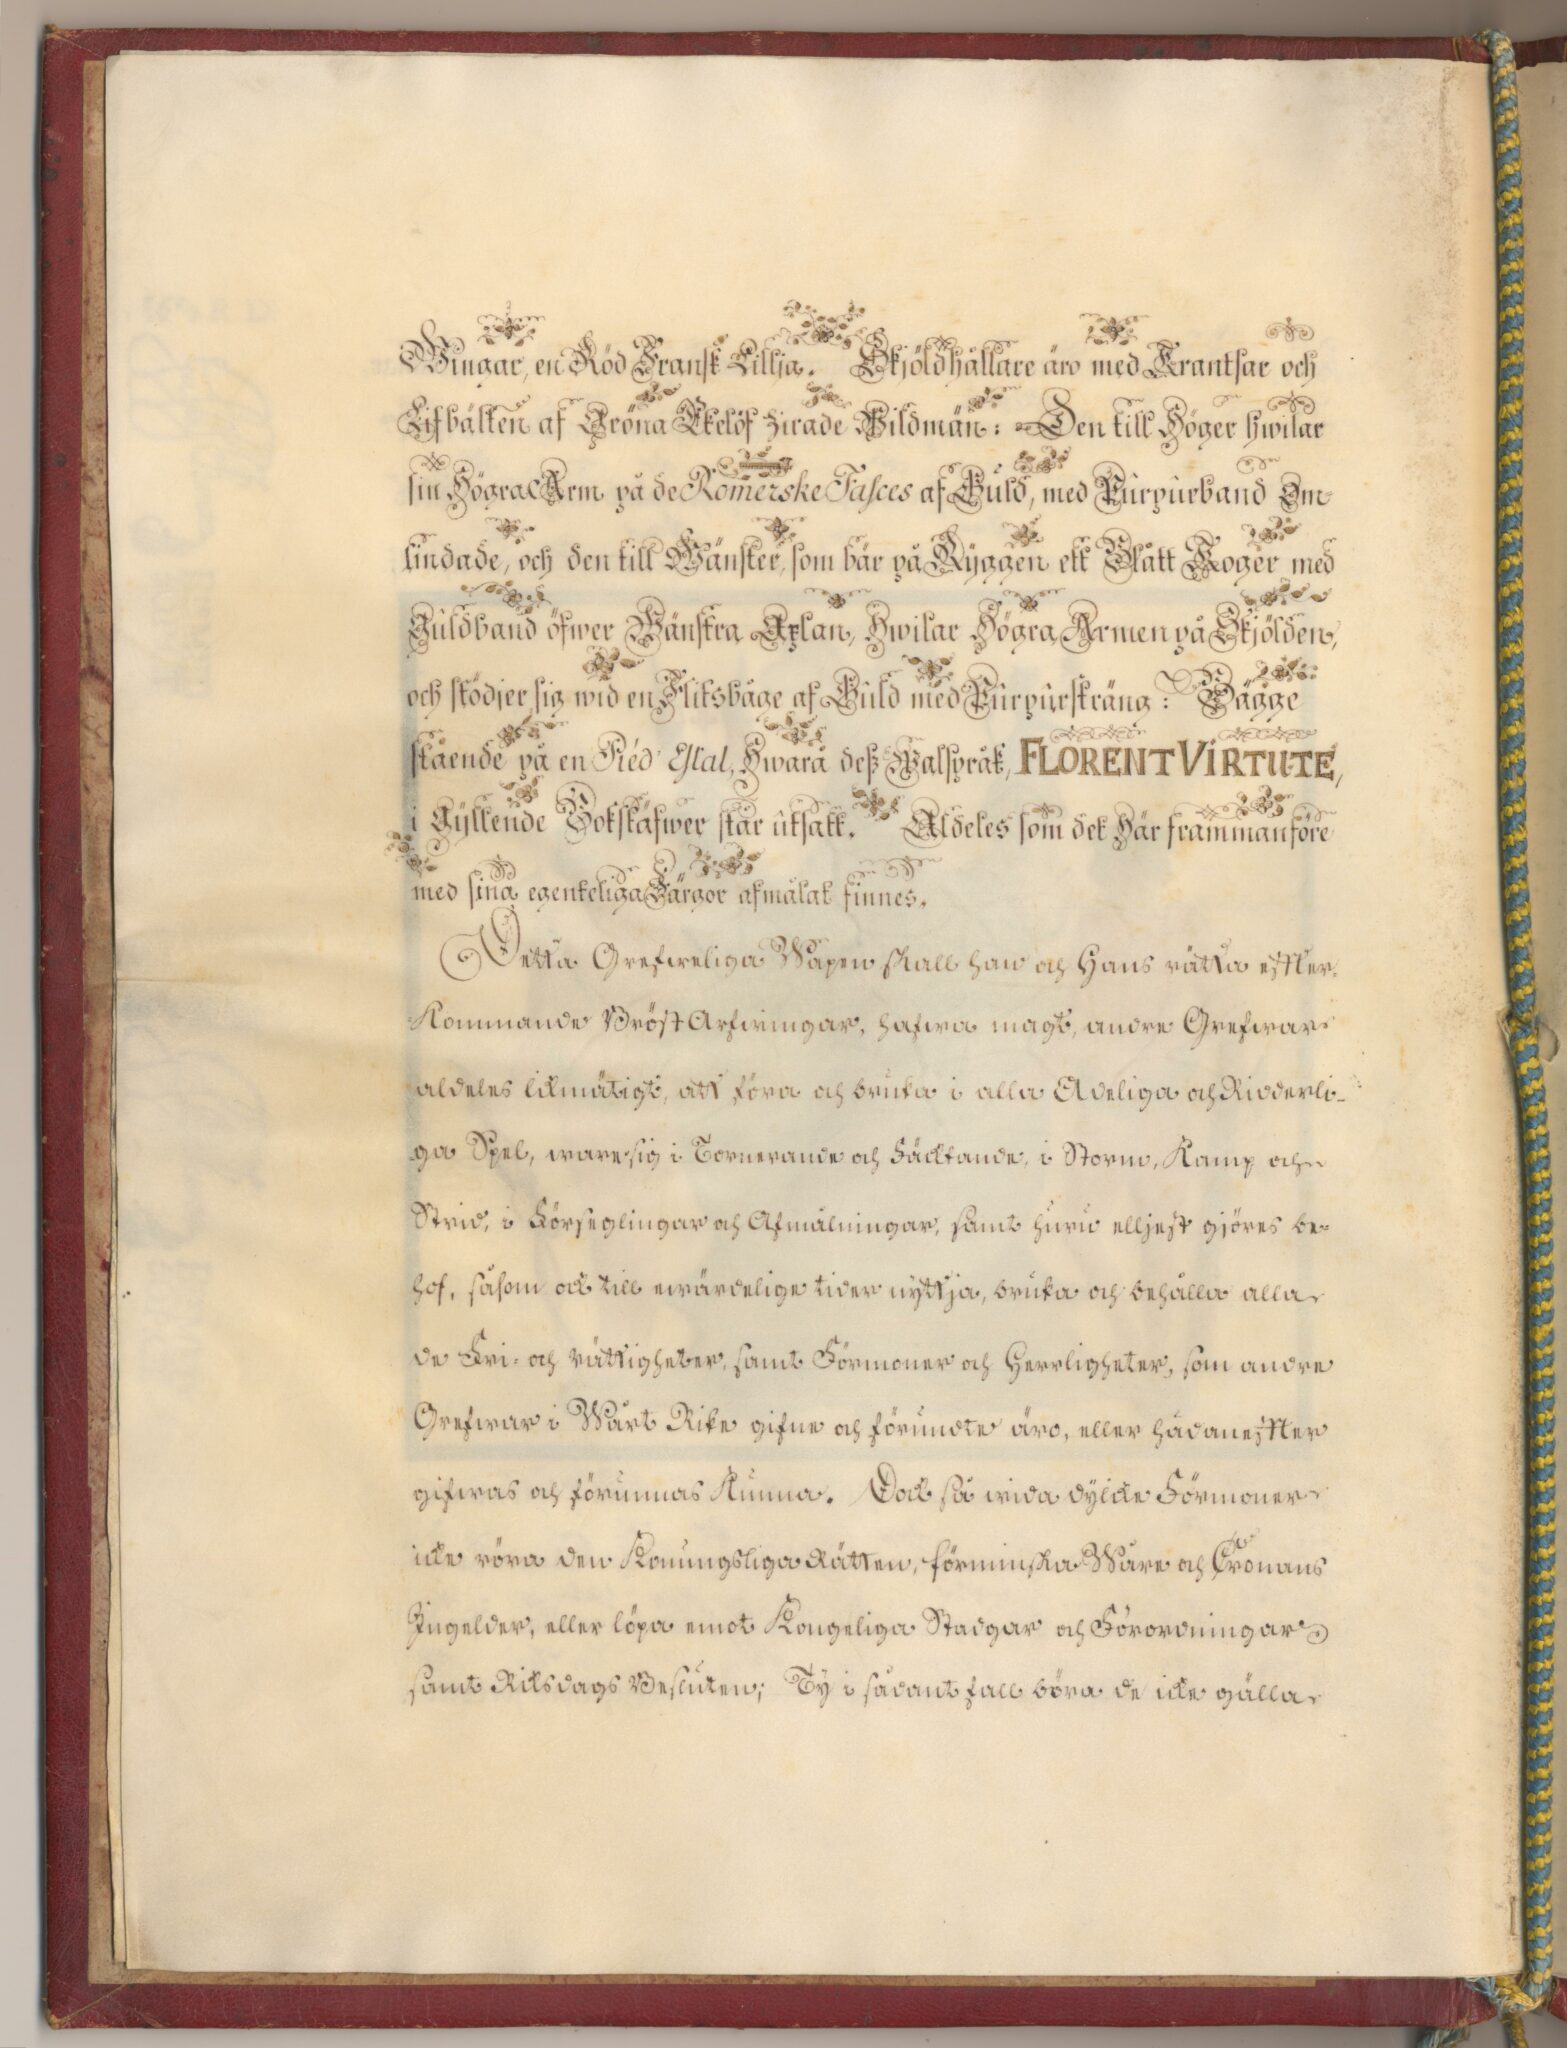 Wingar, en Röd Fransk Lillja. Skjöldhållare äro med Krantsar och
Lifbälten af Gröna Ekelöf zirade Wildmän: Den till Höger hwilar
sin Högra Arm på de Romerske Fasces af Guld, med Purpurband Om-
lindade, och den till Wänster, som bär på Ryggen ett Blått Koger med
Guldband öfwer Wänstra Axlan, Hwilar Högra Armen på Skjölden,
och stödjer sig wid en Flitsbåge af Guld med Purpursträng: Bägge
stående på en Pied' Estal, Hwara deß Walspråk, FLORENT VIRTUTE,
i Gyllende Bokstäfwer står utsatt. Aldeles som det Här frammanföre
med sina egenteliga Färgor afmålat finnes.
Detta Grefweliga Wapen skall han och Hans rätta efter-
kommande Bröst Arfwingar, hafwa magt, andre Grefwar
aldeles likmätigt, att föra och bruka i alla Adeliga och Ridderli-
ga Spel, ware sig i Tornerande och Fäcktande, i Storm, Kamp och
Strid, i Förseglingar och Afmålningar, samt huru elljest gjöres be-
hof, såsom ock till ewärdelige tider nyttja, bruka och behålla alla
de Fri- och rättigheter, samt Förmoner och Herrligheter, som andre
Grefwar i Wårt Rike gifne och förundte äro, eller hädanefter
gifwas och förunnas kunna. Dock så wida dylike Förmoner
icke röra den Konungsliga Rätten, förminska Wåre och Cronans
Ingelder, eller löpa emot Kongeliga Stadgar och Förordningar
samt Riksdags Besluten; Ty i sådant fall böra de icke gälla